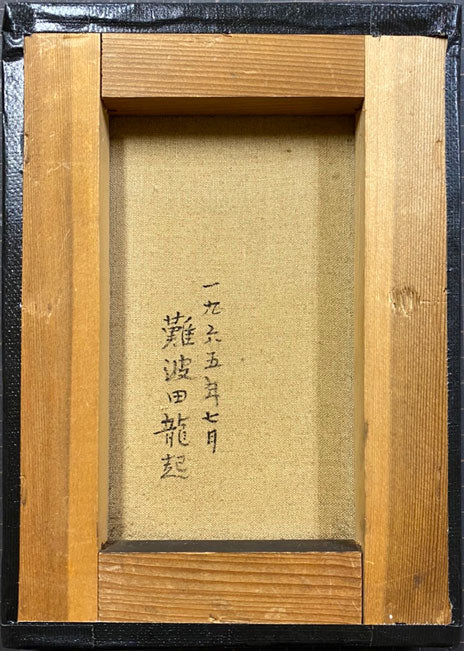 一九六五年七月
難波田龍起